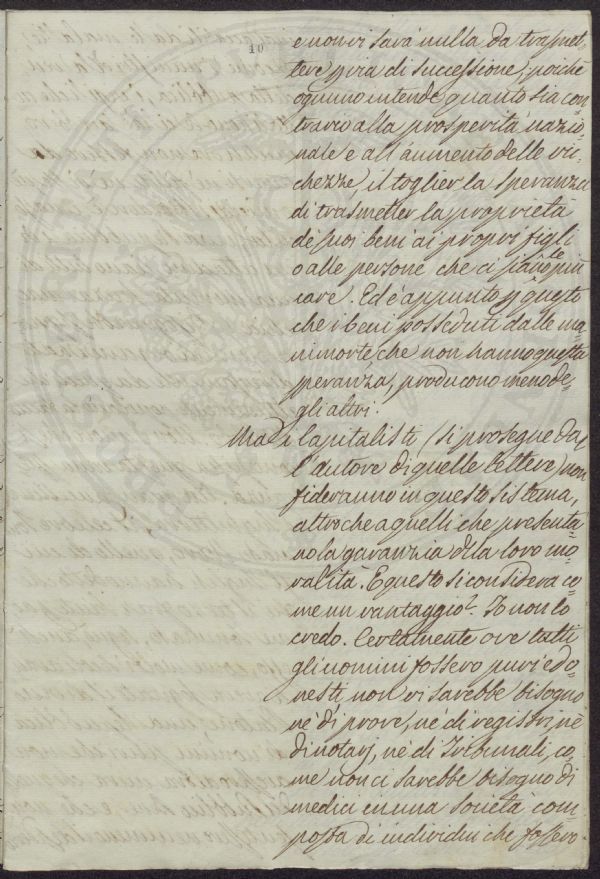 10
e non vi sarà nulla da trasmet-
tere p via di successione; poiché
ognuno intende quanto sia con
trario alla prosperità nazio-
nale e all'aumento delle ric-
chezze, il toglier la speranza
di trasmetter la proprietà
de' suoi beni ai propri figli
o alle persone che ci sono le più
care. Ed è appunto p questo
che i beni posseduti dalle ma
nimorte, che non hanno questa
speranza, producono meno de-
gli altri.
Ma i Capitalisti (si prosegue dal
l'autore di quelle lettere) non
fideranno in questo sistema,
altro che a quelli che presenta-
no la garanzia della loro mo-
ralità. E questo si considera co-
me un vantaggio? Io non lo
credo. Certamente ove tutti
gli uomini fossero puri ed o-
nesti non vi sarebbe bisogno
né di prove, né di registri, né
di notarj, né di Tribunali, co-
me non ci sarebbe bisogno di
medici in una società com
posta di individui che fossero